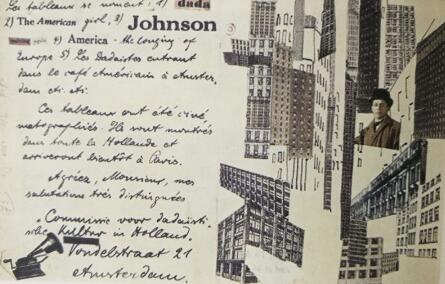 Les tableaux se nomment: 1) dada
2) The American girl, 3) Johnson
4) America - the longing of
Europe 5) Les Dadaistes entrant
dans le café Américain à Amster-
dam etc. etc.
Ces tableaux ont été ciné-
matographiés. Ils sont montrés
dans toute la Hollande et
arriveront bientôt à Paris.
Agréez, Monsieur, mes
salutations très distinguées
"Commissie voor dadaisti-
sche Kultur in Holland."
Vondelstraat 21
Amsterdam.